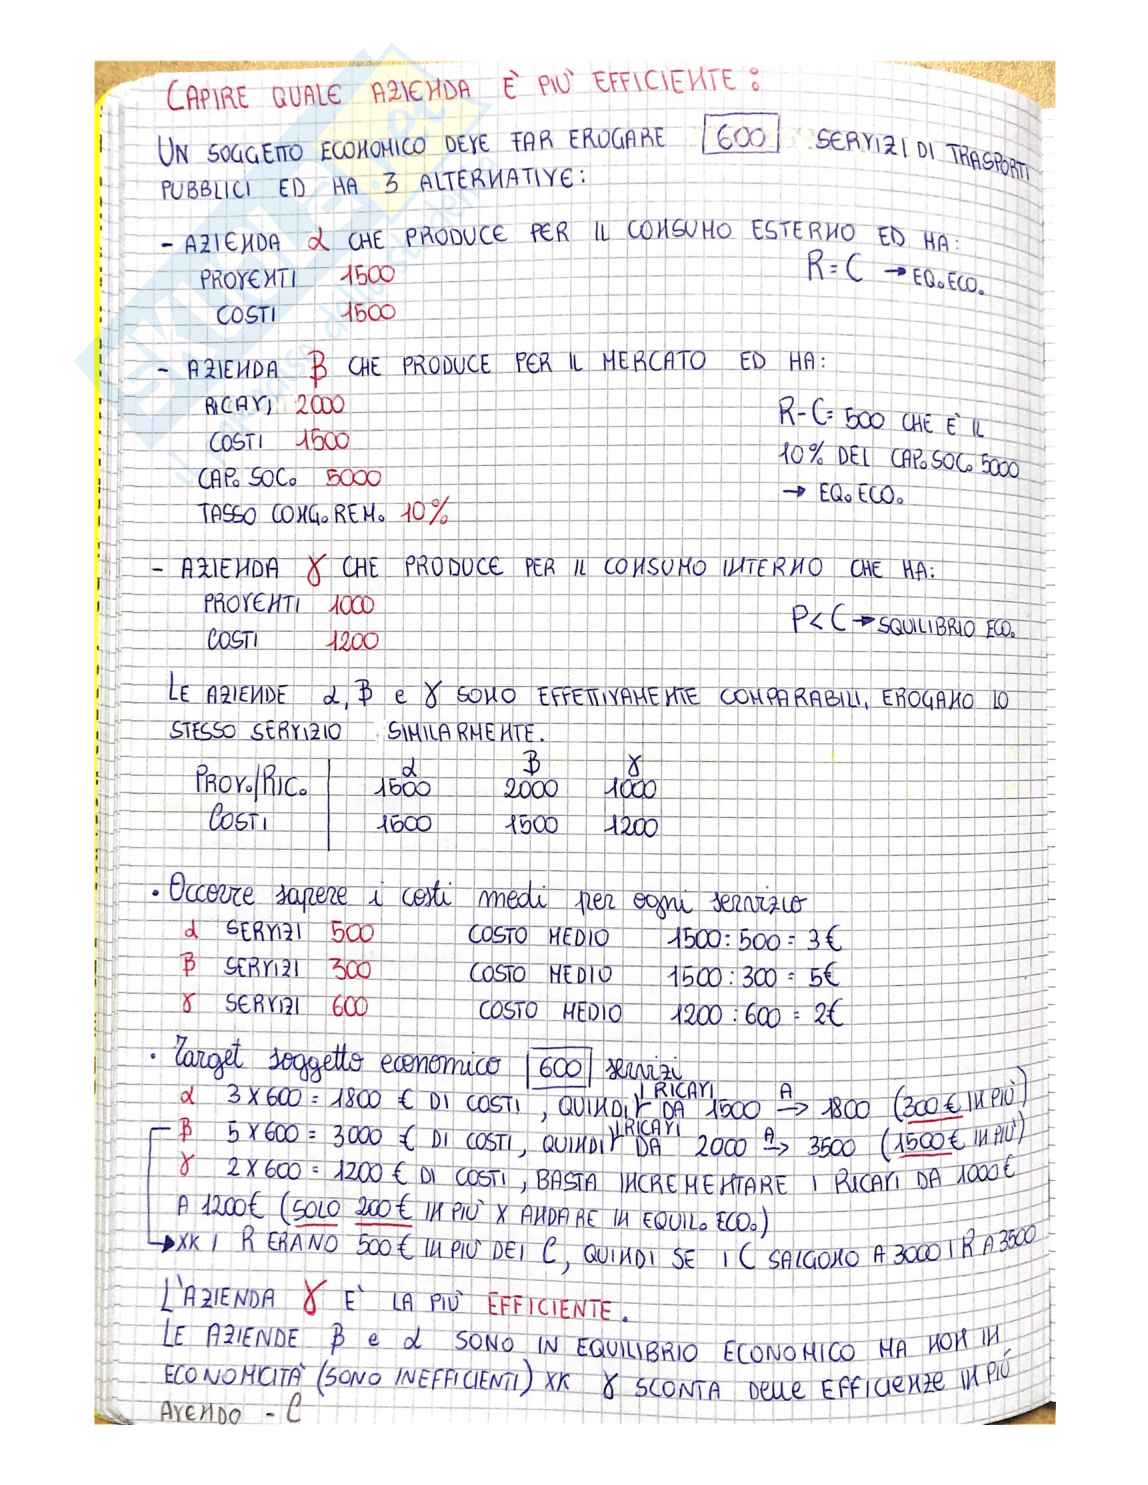 CAPIRE QUALE AZIENDA È PIÙ EFFICIENTE:
UN SOGGETTO ECONOMICO DEVE FAR EROGARE 600 SERVIZI DI TRASPORTI
PUBBLICI ED HA 3 ALTERNATIVE:
- AZIENDA α CHE PRODUCE PER IL CONSUMO ESTERNO ED HA:
PROVENTI 1500 R = C → EQ. ECO.
COSTI 1500
- AZIENDA β CHE PRODUCE PER IL MERCATO ED HA:
RICAVI 2000 R-C= 500 CHE È IL
COSTI 1500 10% DEL CAP. SOC. 5000
CAP. SOC. 5000 → EQ. ECO.
TASSO CONG. REM. 10%
- AZIENDA γ CHE PRODUCE PER IL CONSUMO INTERNO CHE HA:
PROVENTI 1000 P < C → SQUILIBRIO ECO.
COSTI 1200
LE AZIENDE α, β e γ SONO EFFETTIVAMENTE COMPARABILI, EROGANO LO
STESSO SERVIZIO SIMILARMENTE.
α β γ
PROV./RIC. 1500 2000 1000
COSTI 1500 1500 1200
• Occorre sapere i costi medi per ogni servizio
α SERVIZI 500 COSTO MEDIO 1500 : 500 = 3€
β SERVIZI 300 COSTO MEDIO 1500 : 300 = 5€
γ SERVIZI 600 COSTO MEDIO 1200 : 600 = 2€
• Target soggetto economico 600 servizi
α 3 X 600 = 1800 € DI COSTI, QUINDI I RICAVI DA 1500 A → 1800 (300 € IN PIÙ)
β 5 X 600 = 3000 € DI COSTI, QUINDI I RICAVI DA 2000 A → 3500 (1500 € IN PIÙ)
γ 2 X 600 = 1200 € DI COSTI, BASTA INCREMENTARE I RICAVI DA 1000€
A 1200€ (SOLO 200€ IN PIÙ X ANDARE IN EQUIL. ECO.)
→ XK I R ERANO 500€ IN PIÙ DEI C, QUINDI SE I C SALGONO A 3000 I R A 3500
L'AZIENDA γ È LA PIÙ EFFICIENTE.
LE AZIENDE β e α SONO IN EQUILIBRIO ECONOMICO MA NON IN
ECONOMICITÀ (SONO INEFFICIENTI) XK γ SCONTA DELLE EFFICIENZE IN PIÙ
AVENDO - C